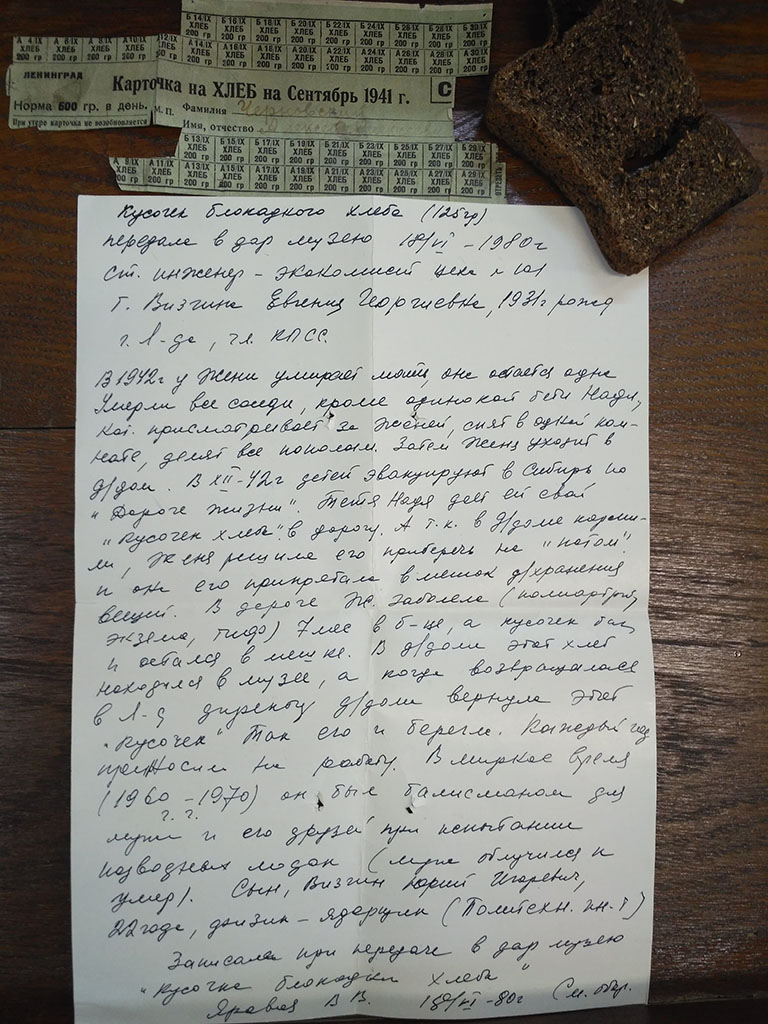 Б 14/IX ХЛЕБ 200 гр Б 16/IX ХЛЕБ 200 гр Б 18/IX ХЛЕБ 200 гр Б 20/IX ХЛЕБ 200 гр Б 22/IX ХЛЕБ 200 гр Б 24/IX ХЛЕБ 200 гр Б 26/IX ХЛЕБ 200 гр Б 28/IX ХЛЕБ 200 гр Б 30/IX ХЛЕБ 200 гр
А 4/IX ХЛЕБ 200 гр А 6/IX ХЛЕБ 200 гр А 8/IX ХЛЕБ 200 гр А 10/IX ХЛЕБ 200 гр А 12/IX ХЛЕБ 200 гр А 14/IX ХЛЕБ 200 гр А 16/IX ХЛЕБ 200 гр А 18/IX ХЛЕБ 200 гр А 20/IX ХЛЕБ 200 гр А 22/IX ХЛЕБ 200 гр А 24/IX ХЛЕБ 200 гр А 26/IX ХЛЕБ 200 гр А 28/IX ХЛЕБ 200 гр А 30/IX ХЛЕБ 200 гр
ЛЕНИНГРАД
Карточка на ХЛЕБ на Сентябрь 1941 г. С
Норма 600 гр. в день. М. П. Фамилия
При утере карточка не возобновляется Имя, отчество
Б 13/IX ХЛЕБ 200 гр Б 15/IX ХЛЕБ 200 гр Б 17/IX ХЛЕБ 200 гр Б 19/IX ХЛЕБ 200 гр Б 21/IX ХЛЕБ 200 гр Б 23/IX ХЛЕБ 200 гр Б 25/IX ХЛЕБ 200 гр Б 27/IX ХЛЕБ 200 гр Б 29/IX ХЛЕБ 200 гр
А 9/IX ХЛЕБ 200 гр А 11/IX ХЛЕБ 200 гр А 13/IX ХЛЕБ 200 гр А 15/IX ХЛЕБ 200 гр А 17/IX ХЛЕБ 200 гр А 19/IX ХЛЕБ 200 гр А 21/IX ХЛЕБ 200 гр А 23/IX ХЛЕБ 200 гр А 25/IX ХЛЕБ 200 гр А 27/IX ХЛЕБ 200 гр А 29/IX ХЛЕБ 200 гр
Кусочек блокадного хлеба (125гр)
передала в дар музею 18/VI - 1980г
ст. инженер - экономист цеха № 101
т. Визгина Евгения Георгиевна, 1931г рожд
г. Л-да, чл. КПСС.
В 1942г у Жени умирает мать, она остается одна
Умерли все соседи, кроме одинокой тети Нади,
кот. присматривает за Женей, спят в одной ком-
нате, делят все пополам. Затем Женя уходит в
д/дом. В XII-42г детей эвакуируют в Сибирь по
"Дороге жизни". Тетя Надя дает ей свой
"кусочек хлеба" в дорогу. А т.к. в д/доме корми-
ли, Женя решила его приберечь на "потом"
и она его припрятала в мешок д/хранения
вещей. В дороге Ж. заболела (полиартрит,
экзема, тиф) 7 мес в б-це, а кусочек так
и остался в мешке. В д/доме этот хлеб
находился в музее, а когда возвращалась
в Л-д директор д/дома вернула этот
"кусочек" Так его и берегли. Каждый год
приносим на работу. В мирное время
(1960 - 1970) он был талисманом для
г. г.
мужа и его друзей при испытании
подводных лодок (муж облучился и
умер). Сын, Визгин Юрий Игоревич,
22 года, физик - ядерщик (Политехн. ин-т)
Записала при передаче в дар музею
"Кусочка блокадного хлеба"
Яровая В В. 18/VI-80г См. обор.